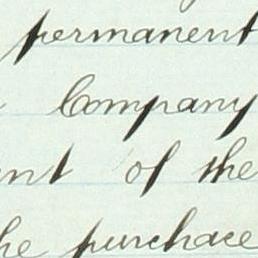 permanent
Company
of the
purchase